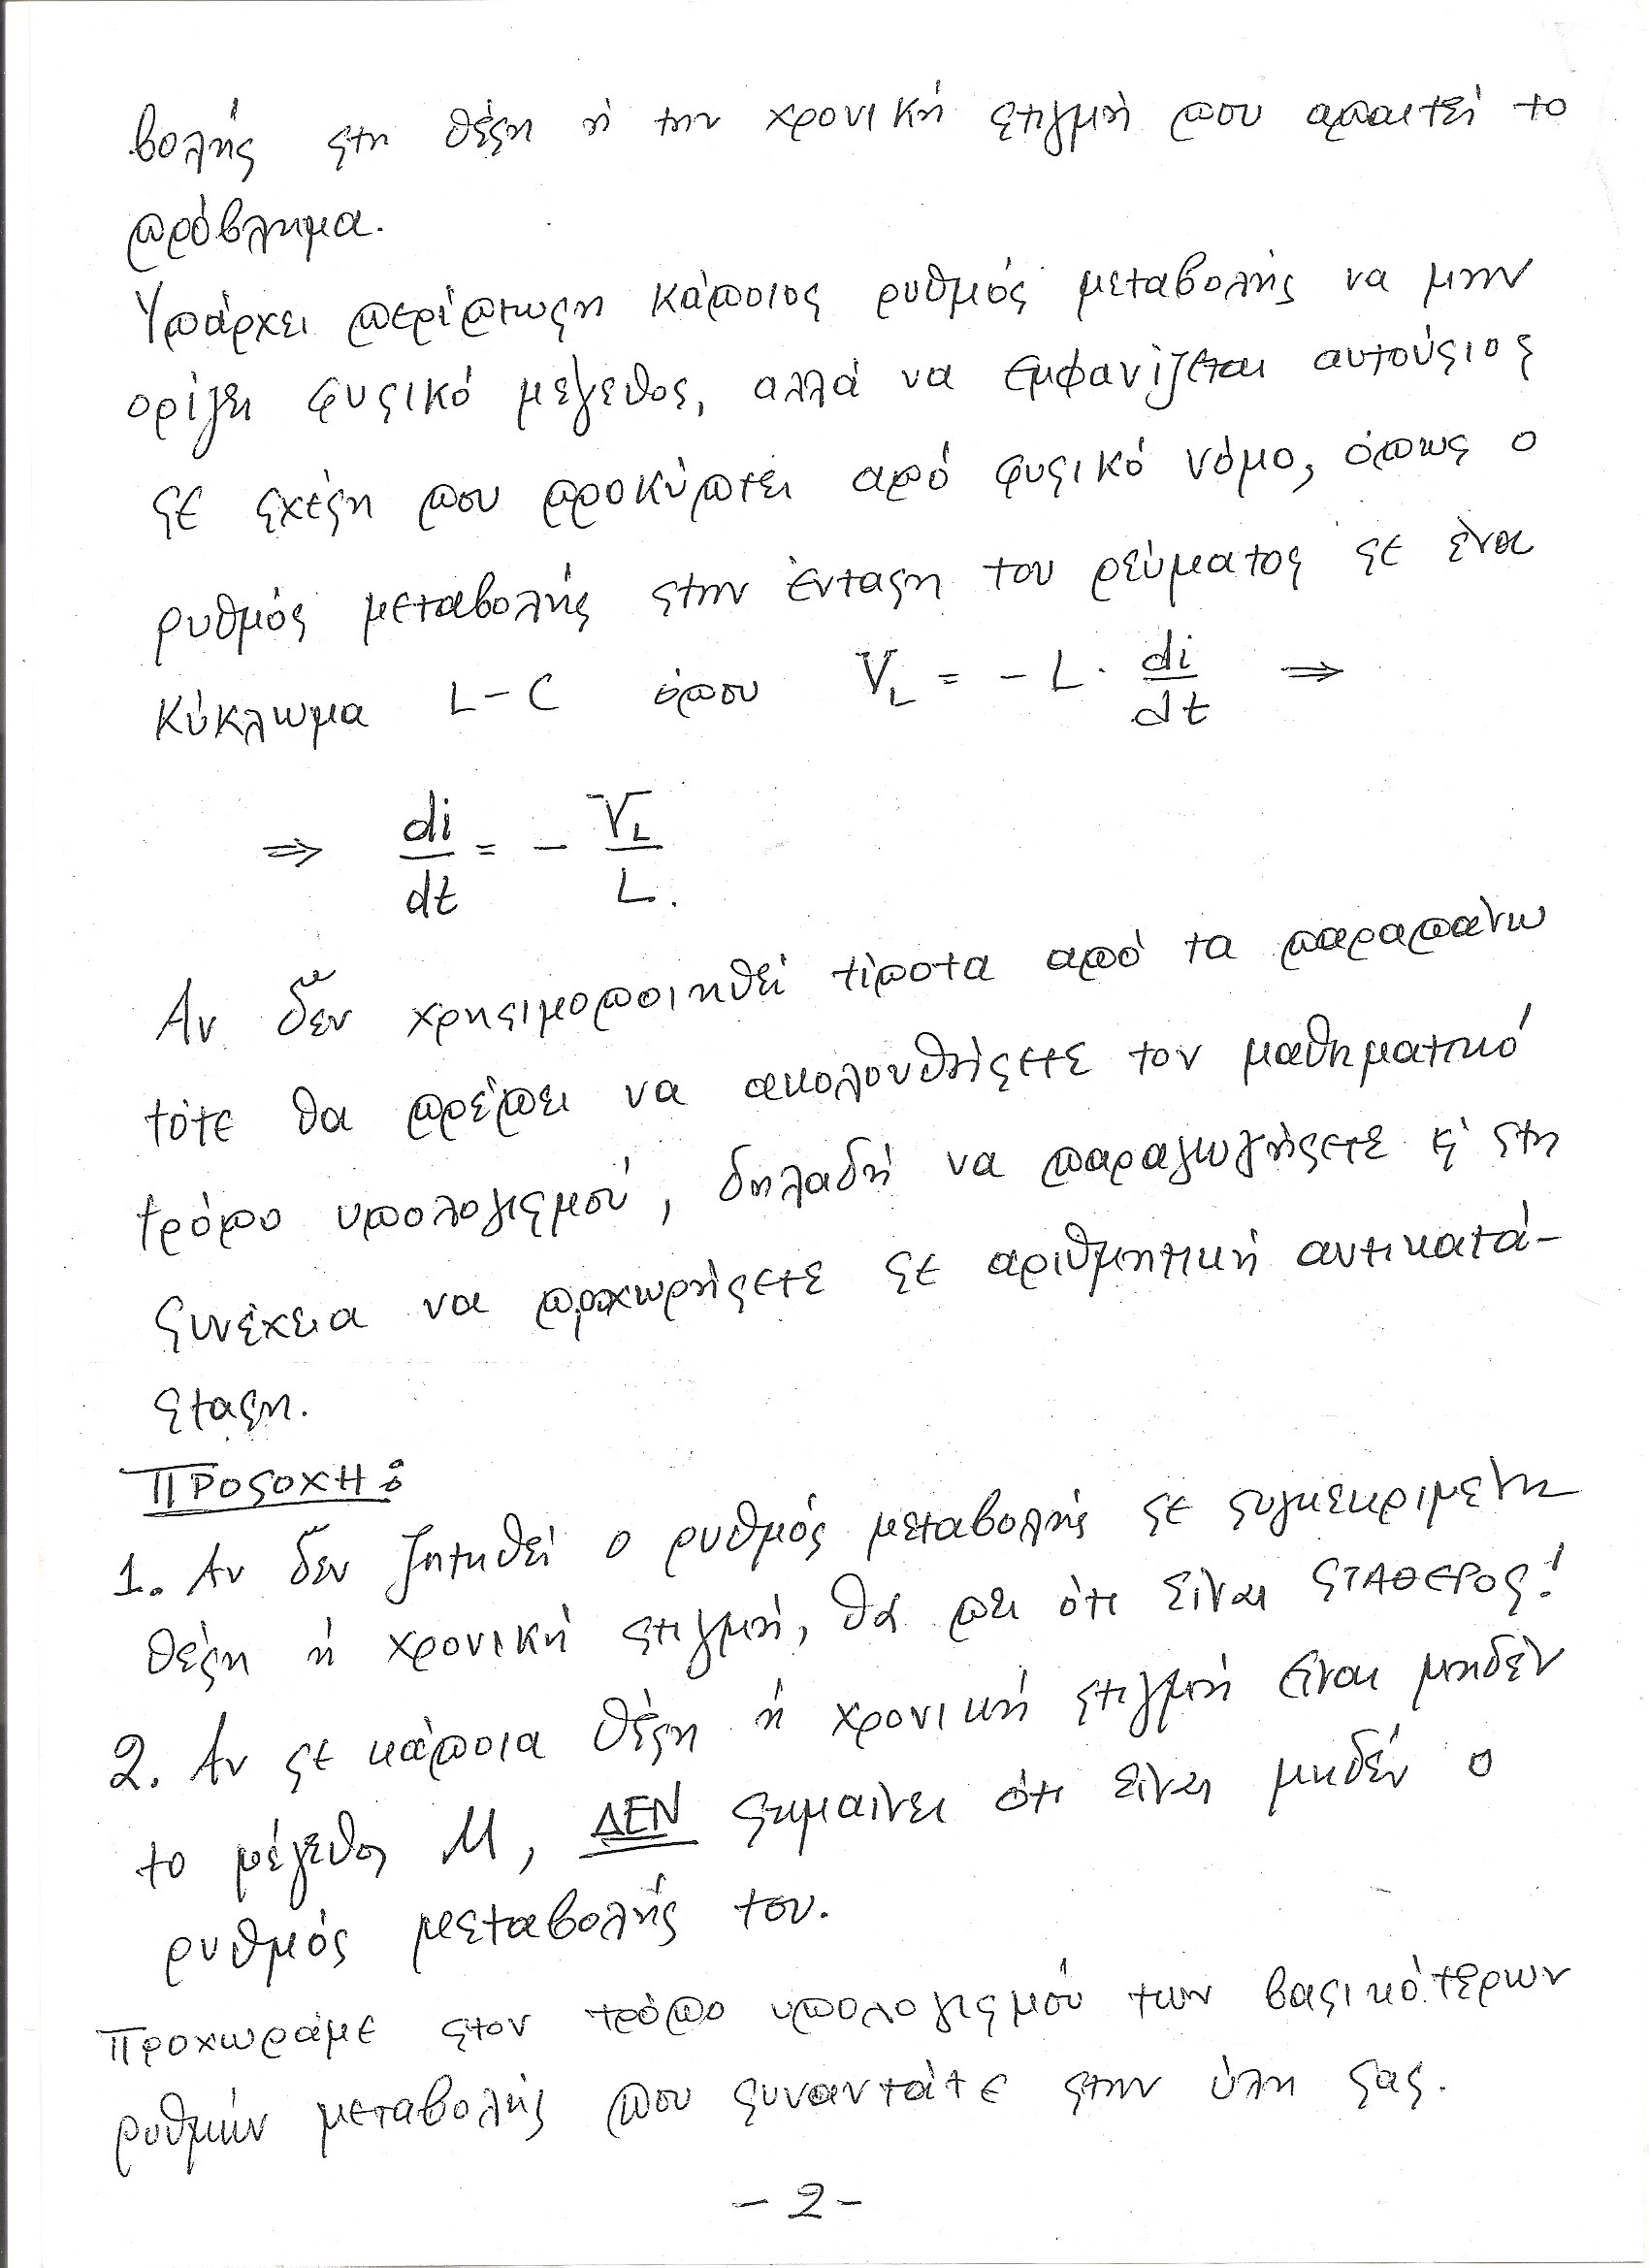 βολής στη θέση ή την χρονική στιγμή που απαιτεί το
πρόβλημα.
Υπάρχει περίπτωση κάποιος ρυθμός μεταβολής να μην
ορίζει φυσικό μέγεθος, αλλά να εμφανίζεται αυτούσιος
σε σχέση που προκύπτει από φυσικό νόμο, όπως ο
ρυθμός μεταβολής στην ένταση του ρεύματος σε ένα
κύκλωμα L-C όπου V_L = - L · di/dt ⇒
⇒ di/dt = - V_L/L.
Αν δεν χρησιμοποιηθεί τίποτα από τα παραπάνω
τότε θα πρέπει να ακολουθήσετε τον μαθηματικό
τρόπο υπολογισμού, δηλαδή να παραγωγήσετε κ' στη
συνέχεια να προχωρήσετε σε αριθμητική αντικατά-
σταση.
ΠΡΟΣΟΧΗ:
1. Αν δεν ζητηθεί ο ρυθμός μεταβολής σε συγκεκριμένη
θέση ή χρονική στιγμή, θα πει ότι είναι ΣΤΑΘΕΡΟΣ!
2. Αν σε κάποια θέση ή χρονική στιγμή είναι μηδέν
το μέγεθος Μ, ΔΕΝ σημαίνει ότι είναι μηδέν ο
ρυθμός μεταβολής του.
Προχωράμε στον τρόπο υπολογισμού των βασικότερων
ρυθμών μεταβολής που συναντάτε στην ύλη σας.
- 2 -